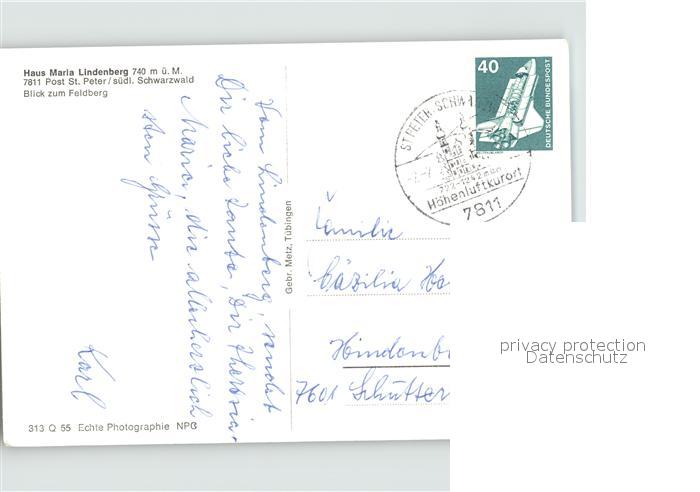 Haus Maria Lindenberg 740 m ü. M.
7811 Post St. Peter/südl. Schwarzwald
Blick zum Feldberg
Vom Lindenberg, sendet
Dir liebe Tante, Dir
Maria, die allerherzlich
sten Grüsse
Karl
Gebr. Metz, Tübingen
40
DEUTSCHE BUNDESPOST
ST PETER SCHWA
722-1242 m
Höhenluftkurort
7811
Familie
Cäzilia
Hindenb
7601 Schutter
313 Q 55 Echte Photographie NPG
privacy protection
Datenschutz